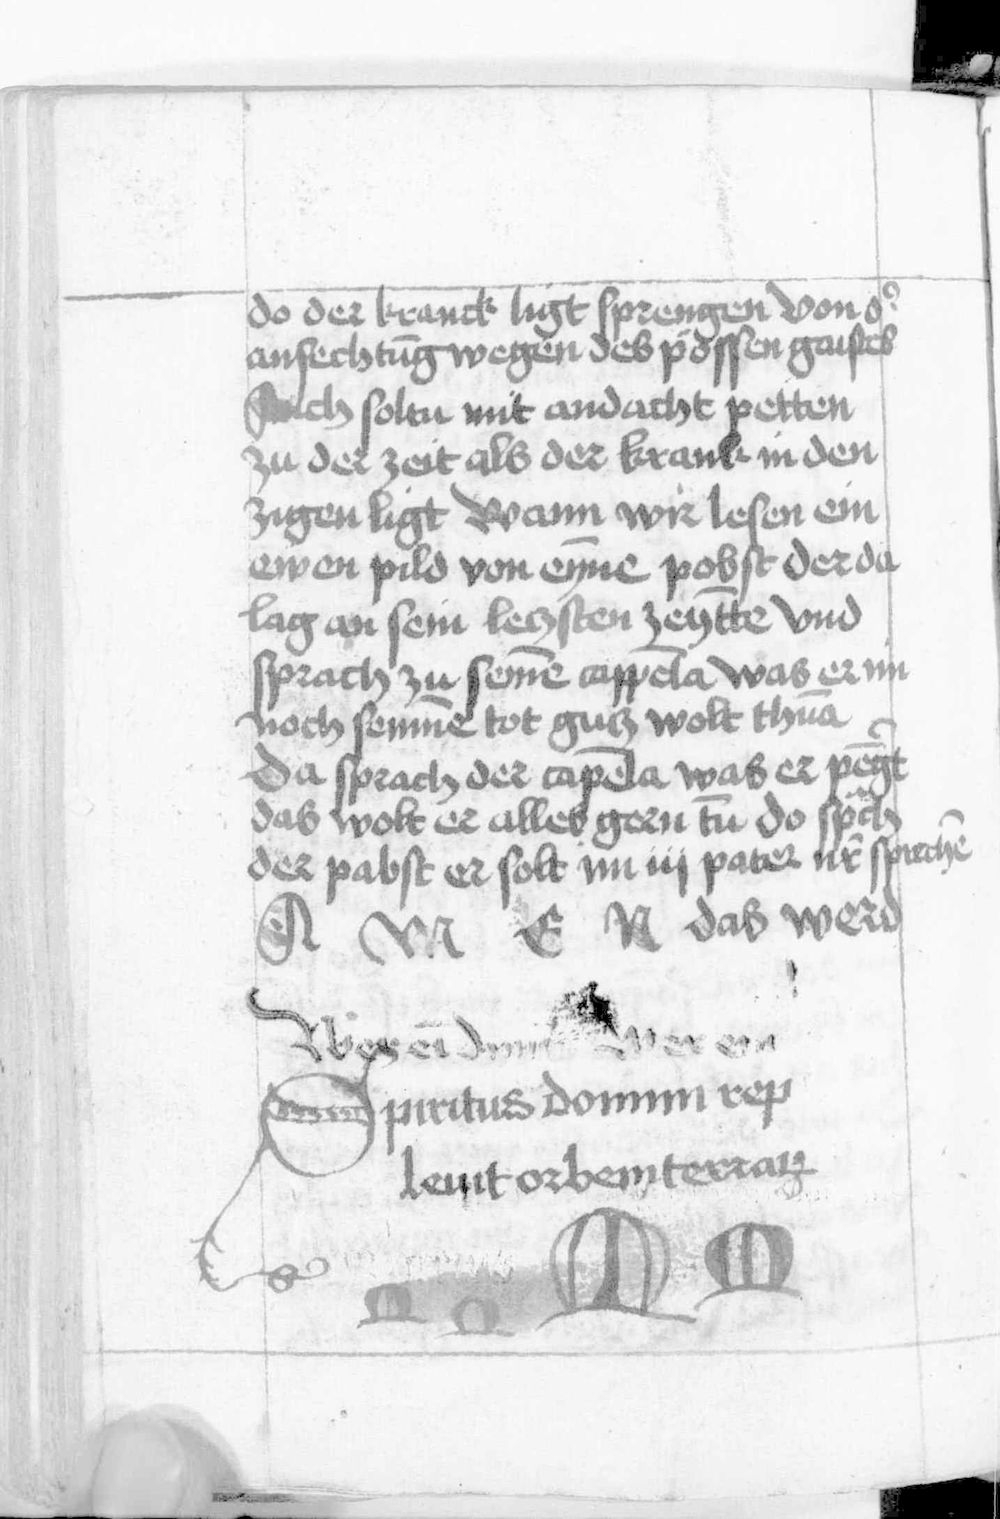 do der kranck ligt sprengen von dˀ
anfechtūg wegen des pössen gaistes
Auch soltu mit andacht petten
zu der zeit als der krank in den
zugen ligt Wann wir lesen ein
ewen pild von eyme pobst der da
lag an sein leczsten zeytte vnd
sprach zu seine cappela was er im
noch seinne tot gutz wolt thūa
Da sprach der capela was er pegt
das wolt er alles gern tūn do sprach
der pabst er solt im iij pater nr̄ sprechē
A M E N das werd
Wer ein Wer ein
Spiritus domini rep
leuit orbem terraꝝ
M M